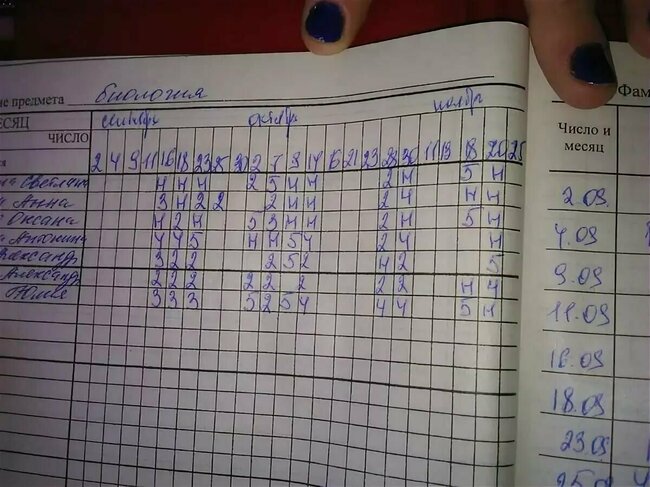 ие предмета биология
МЕСЯЦ сентябрь октябрь ноябрь
ЧИСЛО
2 4 9 11 16 18 23 25 30 2 7 9 14 16 21 23 28 30 11 13 18 20 25
Светлана н н н 2 5 н н 2 н 5 н
Анна 3 н 2 2 2 н н 2 4 н н
Оксана н 2 н 5 3 н н 2 н 5 н
Антонина 4 4 5 н н 5 4 2 4 н
лександр 3 2 2 2 5 2 н 2 5
Александр 2 2 2 2 2 2 2 2 н 4
Юлия 3 3 3 5 2 5 4 4 4 5 н
Фам
Число и
месяц
2.09.
4.09
9.09
11.09
16.09
18.09
23.09
25.09